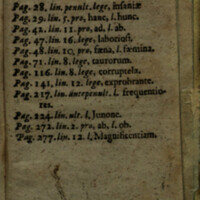 Pag. 28. lin. penult. lege, insaniæ
Pag. 29. lin. 5. pro, hanc, l. hunc.
Pag. 42. lin. 11. pro, ad, l. ab.
Pag. 47. lin. 16. lege, laboriosf.
Pag. 48. lin. 10. pro, fæna, l. fæmina.
Pag. 71. lin. 8. lege, taurorum.
Pag. 116. lin. 8. lege, corruptela.
Pag. 141. lin. 12. lege, exprobrante.
Pag. 217. lin. antepenult. l. frequentio-
res.
Pag. 224. lin. ult. l. Junone.
Pag. 272. lin. 2. pro, ab, l. ob.
Pag. 277. lin. 12. l. Magnificentiam.